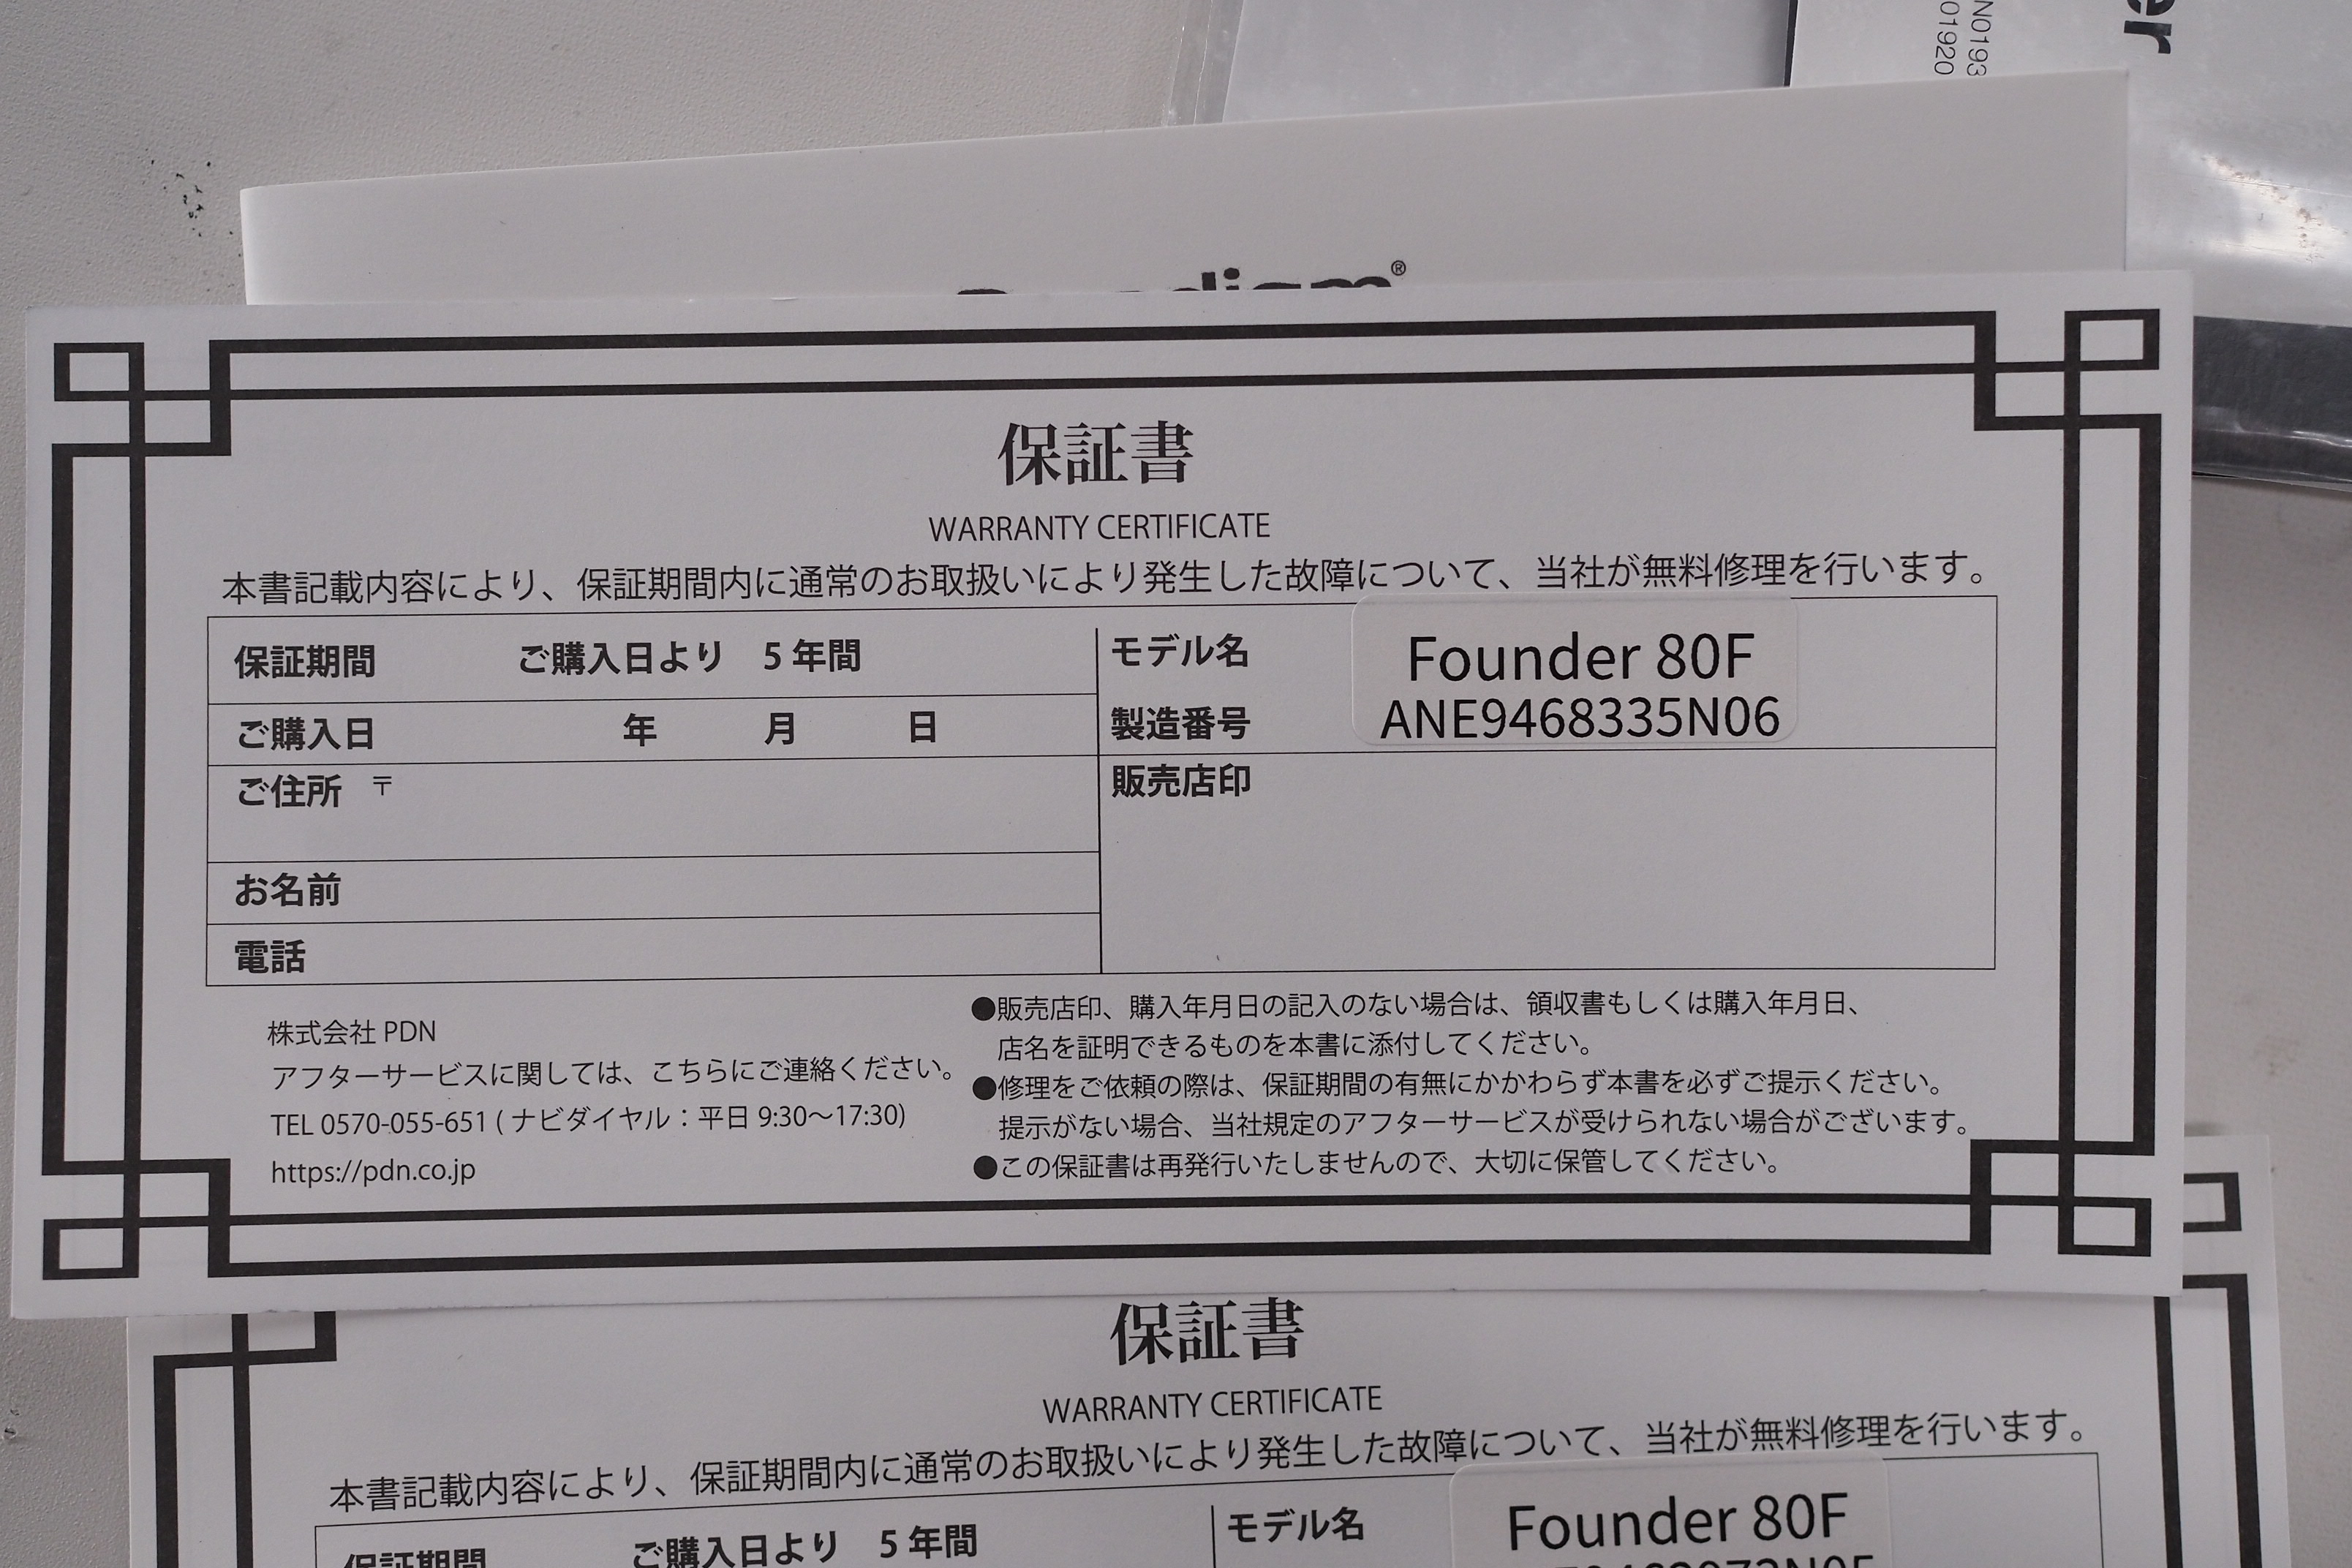 er
N0193
01920
®
保証書
WARRANTY CERTIFICATE
本書記載内容により、保証期間内に通常のお取扱いにより発生した故障について、当社が無料修理を行います。
保証期間 ご購入日より 5年間
モデル名 Founder 80F
ご購入日 年 月 日
製造番号 ANE9468335N06
ご住所 〒
販売店印
お名前
電話
株式会社 PDN
アフターサービスに関しては、こちらにご連絡ください。
TEL 0570-055-651 ( ナビダイヤル：平日 9:30～17:30)
https://pdn.co.jp
●販売店印、購入年月日の記入のない場合は、領収書もしくは購入年月日、
店名を証明できるものを本書に添付してください。
●修理をご依頼の際は、保証期間の有無にかかわらず本書を必ずご提示ください。
提示がない場合、当社規定のアフターサービスが受けられない場合がございます。
●この保証書は再発行いたしませんので、大切に保管してください。
保証書
WARRANTY CERTIFICATE
本書記載内容により、保証期間内に通常のお取扱いにより発生した故障について、当社が無料修理を行います。
保証期間 ご購入日より 5年間
モデル名 Founder 80F